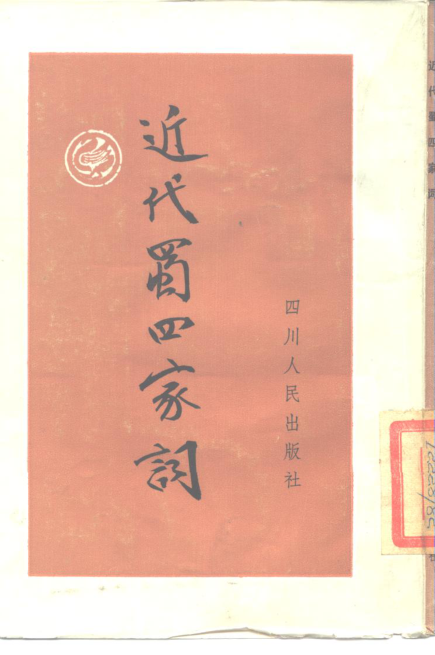 近代蜀四家词
四川人民出版社
近代蜀四家词